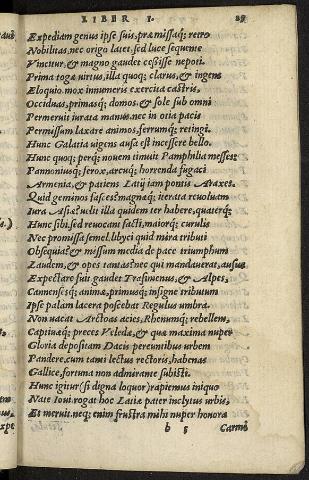 LIBER I. 25
Expediam genus ipse suis, præmissaq; retro
Nobilitas, nec origo latet, sed luce sequente
Vincitur, & magno gaudet cessisse nepoti.
Prima togæ virtus, illa quoq; clarus, & ingens
Eloquio. mox innumeris exercita castris,
Occiduas, primasq; domos, & sole sub omni
Permeruit iurata manus, nec in otia pacis
Permissum laxare animos, ferrumq; recingi.
Hunc Galatia vigens ausa est incessere bello.
Hunc quoq; perq; nouem timuit Pamphilia messes:
Pannoniusq; ferox, arcuq; horrenda fugaci
Armenia, & patiens Latij iam pontis Araxes.
Quid geminos fasces? magnaq; iterata reuoluam
Iura Asiæ? velit illa quidem ter habere, quaterq;
Hunc sibi, sed reuocant fasti, maiorq; curulis
Nec promissa semel. libyci quid mira tributi
Obsequia? & missum media de pace triumphum
Laudem, & opes tantas? nec qui mandauerat, ausus
Expectare fuit. gaudet Trasimenus, & Alpes,
Cannensesq; animæ, primusq; insigne tributum
Ipse palam lacera poscebat Regulus umbra.
Non uacat Arctoas acies, Rhenumq; rebellem,
Captiuæq; preces Veledæ, & quæ maxima nuper
Gloria depositam Dacis pereuntibus urbem
Pandere, cum tanti lectus rectoris, habenas
Gallice, fortuna non admirante subisti.
Hunc igitur (si digna loquor) rapiemus iniquo
Nate Ioui. rogat hoc Latiæ pater inclytus urbis,
Et meruit. neq; enim frustra mihi nuper honora
b 5 Carmi